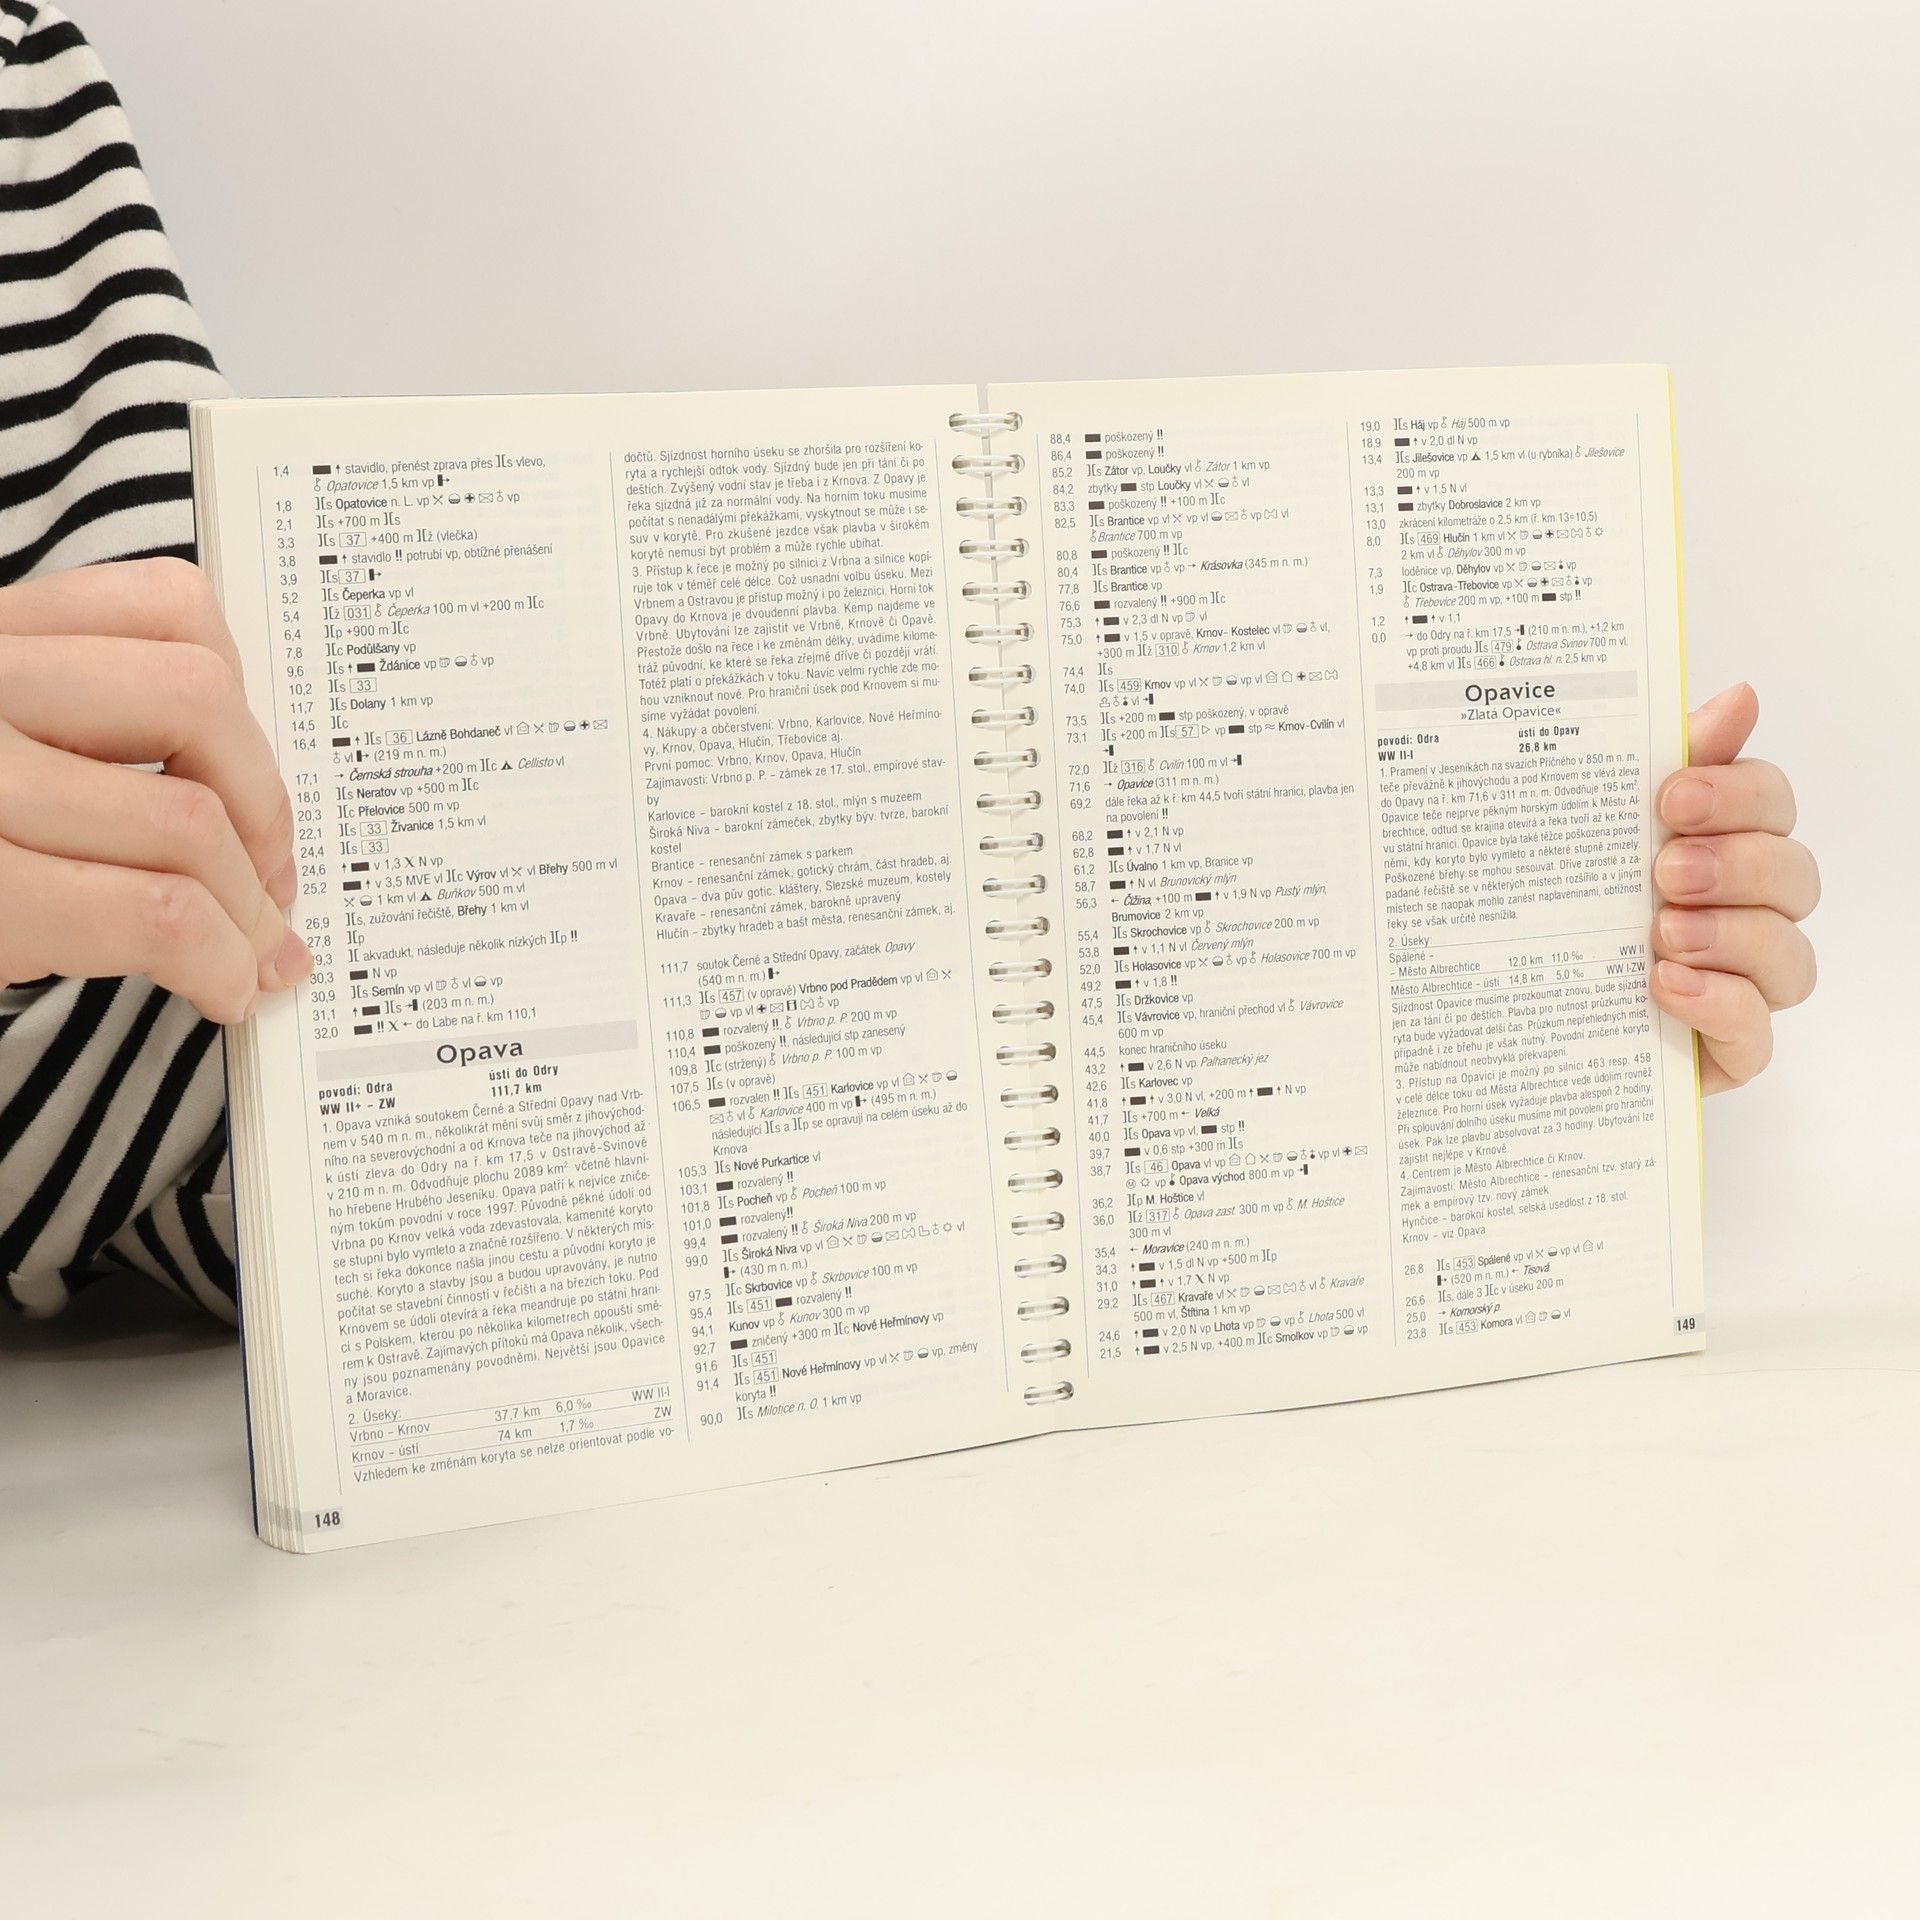 1,4 ↑ stavidlo, přenést zprava přes ][s vlevo,
Opatovice 1,5 km vp
1,8 ][s Opatovice n. L. vp vp
2,1 ][s +700 m ][s
3,3 ][s 37 +400 m ][ž (vlečka)
3,8 ↑ stavidlo !! potrubí vp, obtížné přenášení
3,9 ][s 37
5,2 ][s Čeperka vp vl
5,4 ][ž 031 Čeperka 100 m vl +200 m ][c
6,4 ][p +900 m ][c
7,8 ][c Podůlšany vp
9,6 ][s ↑ Ždánice vp vp
10,2 ][s 33
11,7 ][s Dolany 1 km vp
14,5 ][c
16,4 ↑ ][s 36 Lázně Bohdaneč vl
vl (219 m n. m.)
17,1 → Černská strouha +200 m ][c Cellisto vl
18,0 ][s Neratov vp +500 m ][c
20,3 ][c Přelovice 500 m vp
22,1 ][s 33 Živanice 1,5 km vl
24,4 ][s 33
24,6 ↑ v 1,3 X N vp
25,2 ↑ v 3,5 MVE vl ][c Výrov vl vl Břehy 500 m vl
1 km vl Buňkov 500 m vl
26,9 ][s, zužování řečiště, Břehy 1 km vl
27,8 ][p
9,3 ][ akvadukt, následuje několik nízkých ][p !!
30,3 N vp
30,9 ][s Semín vp vl vl vp
31,1 ↑ ][s (203 m n. m.)
32,0 !! X ← do Labe na ř. km 110,1
Opava
povodí: Odra ústí do Odry
WW II+ – ZW 111,7 km
1. Opava vzniká soutokem Černé a Střední Opavy nad Vrb-
nem v 540 m n. m., několikrát mění svůj směr z jihovýchod-
ního na severovýchodní a od Krnova teče na jihovýchod až
k ústí zleva do Odry na ř. km 17,5 v Ostravě-Svinově
v 210 m n. m. Odvodňuje plochu 2089 km², včetně hlavní-
ho hřebene Hrubého Jeseníku. Opava patří k nejvíce zniče-
ným tokům povodní v roce 1997. Původně pěkné údolí od
Vrbna po Krnov velká voda zdevastovala, kamenité koryto
se stupni bylo vymleto a značně rozšířeno. V některých mís-
tech si řeka dokonce našla jinou cestu a původní koryto je
suché. Koryto a stavby jsou a budou upravovány, je nutno
počítat se stavební činností v řečišti a na březích toku. Pod
Krnovem se údolí otevírá a řeka meandruje po státní hrani-
ci s Polskem, kterou po několika kilometrech opouští smě-
rem k Ostravě. Zajímavých přítoků má Opava několik, všech-
ny jsou poznamenány povodněmi. Největší jsou Opavice
a Moravice.
2. Úseky:
Vrbno – Krnov 37,7 km 6,0 ‰ WW II-I
Krnov – ústí 74 km 1,7 ‰ ZW
Vzhledem ke změnám koryta se nelze orientovat podle vo-
148
dočtů. Sjízdnost horního úseku se zhoršila pro rozšíření ko-
ryta a rychlejší odtok vody. Sjízdný bude jen při tání či po
deštích. Zvýšený vodní stav je třeba i z Krnova. Z Opavy je
řeka sjízdná již za normální vody. Na horním toku musíme
počítat s nenadálými překážkami, vyskytnout se může i se-
suv v korytě. Pro zkušené jezdce však plavba v širokém
korytě nemusí být problém a může rychle ubíhat.
3. Přístup k řece je možný po silnici z Vrbna a silnice kopí-
ruje tok v téměř celé délce. Což usnadní volbu úseku. Mezi
Vrbnem a Ostravou je přístup možný i po železnici. Horní tok
Opavy do Krnova je dvoudenní plavba. Kemp najdeme ve
Vrbně. Ubytování lze zajistit ve Vrbně, Krnově či Opavě.
Přestože došlo na řece i ke změnám délky, uvádíme kilome-
tráž původní, ke které se řeka zřejmě dříve či později vrátí.
Totéž platí o překážkách v toku. Navíc velmi rychle zde mo-
hou vzniknout nové. Pro hraniční úsek pod Krnovem si mu-
síme vyžádat povolení.
4. Nákupy a občerstvení: Vrbno, Karlovice, Nové Heřmino-
vy, Krnov, Opava, Hlučín, Třebovice aj.
První pomoc: Vrbno, Krnov, Opava, Hlučín
Zajímavosti: Vrbno p. P. – zámek ze 17. stol., empírové stav-
by
Karlovice – barokní kostel z 18. stol., mlýn s muzeem
Široká Niva – barokní zámeček, zbytky býv. tvrze, barokní
kostel
Brantice – renesanční zámek s parkem
Krnov – renesanční zámek, gotický chrám, část hradeb, aj.
Opava – dva pův gotic. kláštery, Slezské muzeum, kostely
Kravaře – renesanční zámek, barokně upravený
Hlučín – zbytky hradeb a bašt města, renesanční zámek, aj.
111,7 soutok Černé a Střední Opavy, začátek Opavy
(540 m n. m.)
111,3 ][s 457 (v opravě) Vrbno pod Pradědem vp vl
vp vl vp
110,8 rozvalený !!, Vrbno p. P. 200 m vp
110,4 poškozený !!, následující stp zanesený
109,8 ][c (stržený) Vrbno p. P. 100 m vp
107,5 ][s (v opravě)
106,5 rozvalen !! ][s 451 Karlovice vp vl
vl Karlovice 400 m vp (495 m n. m.)
následující ][s a ][p se opravují na celém úseku až do
Krnova
105,3 ][s Nové Purkartice vl
103,1 rozvalený !!
101,8 ][s Pocheň vp Pocheň 100 m vp
101,0 rozvalený!!
99,4 rozvalený !! Široká Niva 200 m vp
99,0 ][s Široká Niva vp vl vl
(430 m n. m.)
97,5 ][c Skrbovice vp Skrbovice 100 m vp
95,4 ][s 451 rozvalený !!
94,1 Kunov vp Kunov 300 m vp
92,7 zničený +300 m ][c Nové Heřmínovy vp
91,6 ][s 451
91,4 ][s 451 Nové Heřmínovy vp vl vp, změny
koryta !!
90,0 ][s Milotice n. O. 1 km vp
88,4 poškozený !!
86,4 poškozený !!
85,2 ][s Zátor vp, Loučky vl Zátor 1 km vp
84,2 zbytky stp Loučky vl vl
83,3 poškozený !! +100 m ][c
82,5 ][s Brantice vp vl vp vl vp vl
Brantice 700 m vp
80,8 poškozený !! ][c
80,4 ][s Brantice vp vp → Krásovka (345 m n. m.)
77,8 ][s Brantice vp
76,6 rozvalený !! +900 m ][c
75,3 ↑ v 2,3 dl N vp vl
75,0 ↑ v 1,5 v opravě, Krnov- Kostelec vl vl,
+300 m ][ž 310 Krnov 1,2 km vl
74,4 ][s
74,0 ][s 459 Krnov vp vl vp vl
vl
73,5 ][s +200 m stp poškozený, v opravě
73,1 ][s +200 m ][s 57 vp stp ≈ Krnov-Cvilín vl
72,0 ][ž 316 Cvilín 100 m vl
71,6 → Opavice (311 m n. m.)
69,2 dále řeka až k ř. km 44,5 tvoří státní hranici, plavba jen
na povolení !!
68,2 ↑ v 2,1 N vp
62,8 ↑ v 1,7 N vl
61,2 ][s Úvalno 1 km vp, Branice vp
58,7 ↑ N vl Brunovický mlýn
56,3 ← Čižina, +100 m ↑ v 1,9 N vp Pustý mlýn,
Brumovice 2 km vp
55,4 ][s Skrochovice vp Skrochovice 200 m vp
53,8 ↑ v 1,1 N vl Červený mlýn
52,0 ][s Holasovice vp vp Holasovice 700 m vp
49,2 ↑ v 1,8 !!
47,5 ][s Držkovice vp
45,4 ][s Vávrovice vp, hraniční přechod vl Vávrovice
600 m vp
44,5 konec hraničního úseku
43,2 ↑ v 2,6 N vp Palhanecký jez
42,6 ][s Karlovec vp
41,8 ↑ ↑ v 3,0 N vl, +200 m ↑ ↑ N vp
41,7 ][s +700 m ← Velká
40,0 ][s Opava vp vl, stp !!
39,7 v 0,6 stp +300 m ][s
38,7 ][s 46 Opava vl vp vp vl
vp Opava východ 800 m vp
36,2 ][p M. Hoštice vl
36,0 ][ž 317 Opava zast. 300 m vp M. Hoštice
300 m vl
35,4 ← Moravice (240 m n. m.)
34,3 ↑ v 1,5 dl N vp +500 m ][p
31,0 ↑ ↑ v 1,7 X N vp
29,2 ][s 467 Kravaře vl vl Kravaře
500 m vl, Štítina 1 km vp
24,6 ↑ v 2,0 N vp Lhota vp vp Lhota 500 vl
21,5 ↑ v 2,5 N vp, +400 m ][c Smolkov vp vp
19,0 ][s Háj vp Háj 500 m vp
18,9 ↑ v 2,0 dl N vp
13,4 ][s Jilešovice vp 1,5 km vl (u rybníka) Jilešovice
200 m vp
13,3 ↑ v 1,5 N vl
13,1 zbytky Dobroslavice 2 km vp
13,0 zkrácení kilometráže o 2,5 km (ř. km 13=10,5)
8,0 ][s 469 Hlučín 1 km vl
2 km vl Děhylov 300 m vp
7,3 loděnice vp, Děhylov vp vp
1,9 ][c Ostrava-Třebovice vp vp
Třebovice 200 m vp, +100 m stp !!
1,2 ↑ ↑ v 1,1
0,0 → do Odry na ř. km 17,5 (210 m n. m.), +1,2 km
vp proti proudu ][s 479 Ostrava Svinov 700 m vl,
+4,8 km vl ][s 466 Ostrava hl. n. 2,5 km vp
Opavice
»Zlatá Opavice«
povodí: Odra ústí do Opavy
WW II-I 26,8 km
1. Pramení v Jeseníkách na svazích Příčného v 850 m n. m.,
teče převážně k jihovýchodu a pod Krnovem se vlévá zleva
do Opavy na ř. km 71,6 v 311 m n. m. Odvodňuje 195 km².
Opavice teče nejprve pěkným horským údolím k Městu Al-
brechtice, odtud se krajina otevírá a řeka tvoří až ke Krno-
vu státní hranici. Opavice byla také těžce poškozena povod-
němi, kdy koryto bylo vymleto a některé stupně zmizely.
Poškozené břehy se mohou sesouvat. Dříve zarostlé a za-
padané řečiště se v některých místech rozšířilo a v jiným
místech se naopak mohlo zanést naplaveninami, obtížnost
řeky se však určitě nesnížila.
2. Úseky:
Spálené –
– Město Albrechtice 12,0 km 11,0 ‰ WW II
Město Albrechtice – ústí 14,8 km 5,0 ‰ WW I-ZW
Sjízdnost Opavice musíme prozkoumat znovu, bude sjízdná
jen za tání či po deštích. Plavba pro nutnost průzkumu ko-
ryta bude vyžadovat delší čas. Průzkum nepřehledných míst,
případně i ze břehu je však nutný. Povodní zničené koryto
může nabídnout neobvyklá překvapení.
3. Přístup na Opavici je možný po silnici 463 resp. 458
v celé délce toku od Města Albrechtice vede údolím rovněž
železnice. Pro horní úsek vyžaduje plavba alespoň 2 hodiny.
Při splouvání dolního úseku musíme mít povolení pro hraniční
úsek. Pak lze plavbu absolvovat za 3 hodiny. Ubytování lze
zajistit nejlépe v Krnově.
4. Centrem je Město Albrechtice či Krnov.
Zajímavosti: Město Albrechtice – renesanční tzv. starý zá-
mek a empírový tzv. nový zámek
Hynčice – barokní kostel, selská usedlost z 18. stol.
Krnov – viz Opava
26,8 ][s 453 Spálené vp vl vp vl vl
(520 m n. m.) ← Tisová
26,6 ][s, dále 3 ][c v úseku 200 m
25,0 → Komorský p.
23,8 ][s 453 Komora vl vl
149